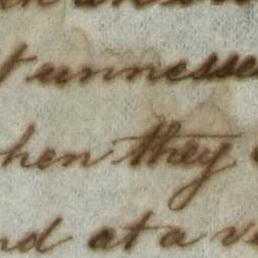 t unnesse
hen they
nd at a v